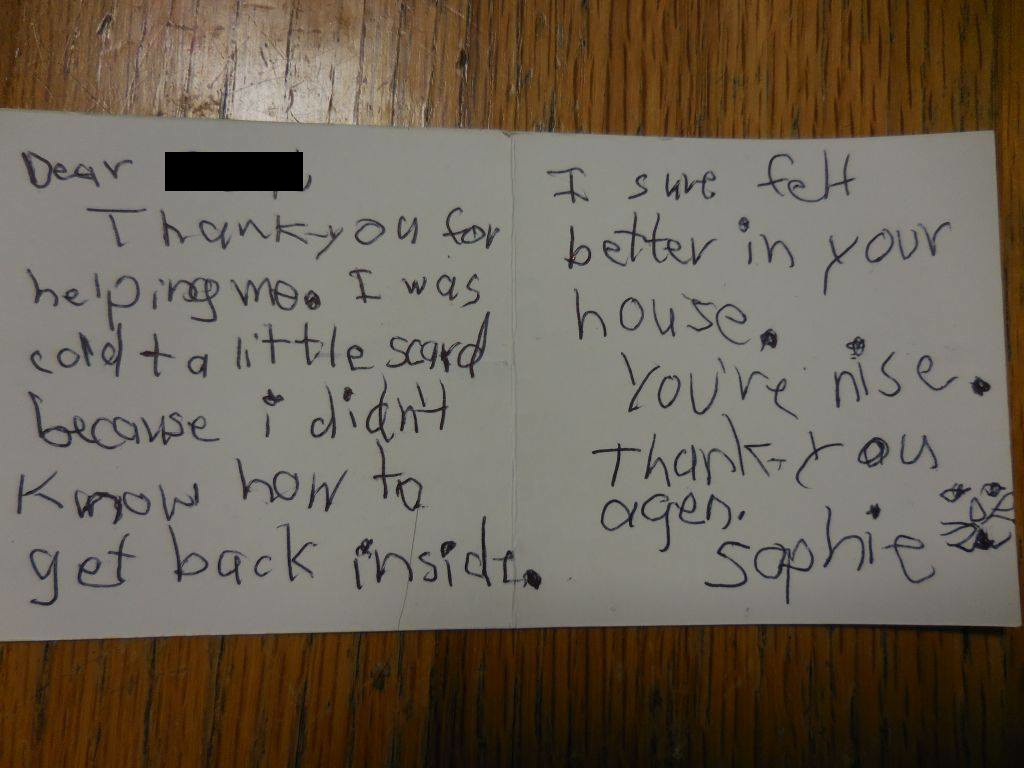 Dear
Thank-you for
helping me. I was
cold + a little scard
because i didn't
Know how to
get back inside.
I sure felt
better in your
house.
You're nise.
Thank-you
agen.
Sophie